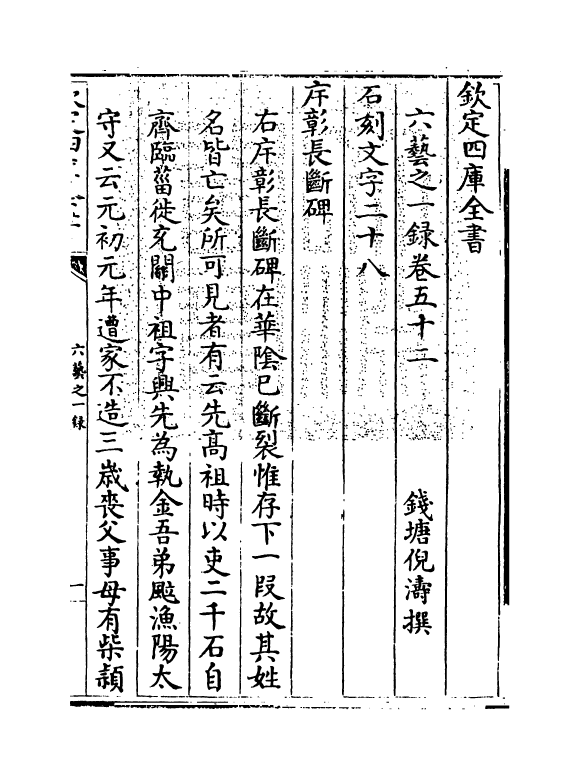 欽定四庫全書
六藝之一録卷五十二
錢塘倪濤撰
石刻文字二十八
斥彰長斷碑
右斥彰長斷碑在華陰已斷裂惟存下一段故其姓
名皆亡矣所可見者有云先高祖時以吏二千石自
齊臨菑徙充關中祖字興先為執金吾弟颰漁陽太
守又云元初元年遭家不造三歲喪父事母有柴穎
六藝之一録
一